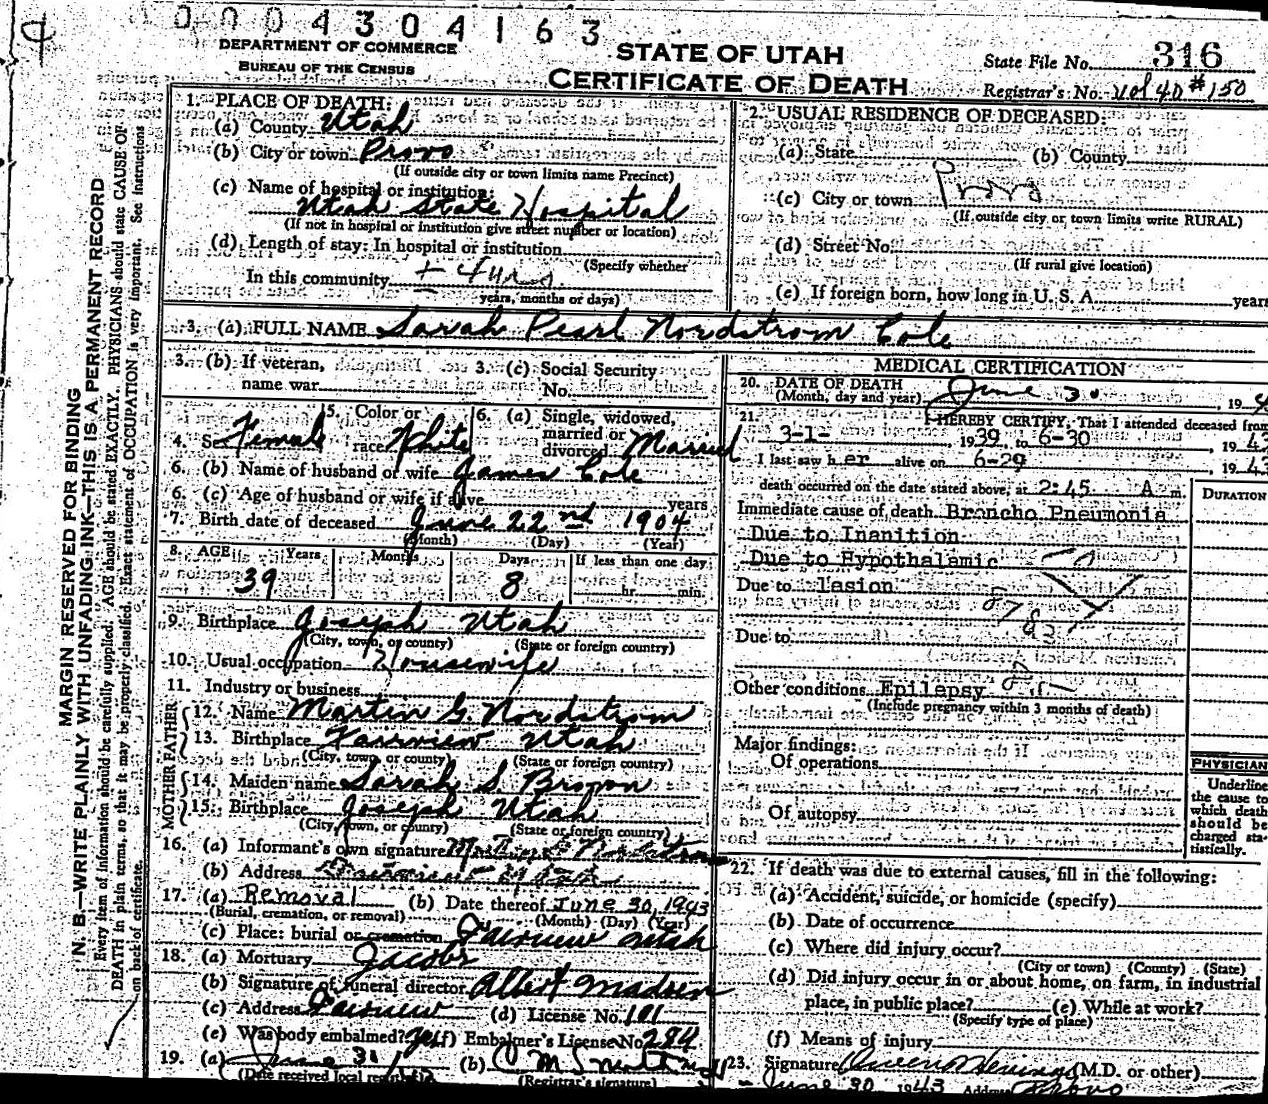 0004304163
DEPARTMENT OF COMMERCE
BUREAU OF THE CENSUS
STATE OF UTAH
CERTIFICATE OF DEATH
State File No. 316
Registrar's No. Vol 40 #150
MARGIN RESERVED FOR BINDING
N. B.—WRITE PLAINLY WITH UNFADING INK—THIS IS A PERMANENT RECORD
Every item of information should be carefully supplied. AGE should be stated EXACTLY. PHYSICIANS should state CAUSE OF
DEATH in plain terms, so that it may be properly classified. Exact statement of OCCUPATION is very important. See instructions
on back of certificate.
1. PLACE OF DEATH:
(a) County Utah
(b) City or town Provo
(If outside city or town limits name Precinct)
(c) Name of hospital or institution:
Utah State Hospital
(If not in hospital or institution give street number or location)
(d) Length of stay: In hospital or institution
(Specify whether
In this community ± 4 yrs
years, months or days)
2. USUAL RESIDENCE OF DECEASED:
(a) State (b) County
(c) City or town Provo
(If outside city or town limits write RURAL)
(d) Street No.
(If rural give location)
(e) If foreign born, how long in U. S. A. years
3. (a) FULL NAME Sarah Pearl Nordstrom Cole
3. (b) If veteran,
name war
3. (c) Social Security
No.
4. Sex Female
5. Color or
race White
6. (a) Single, widowed,
married or
divorced Married
6. (b) Name of husband or wife James Cole
6. (c) Age of husband or wife if alive years
7. Birth date of deceased June 22nd 1904
(Month) (Day) (Year)
8. AGE Years Months Days If less than one day
39 8 hr. min.
9. Birthplace Joseph Utah
(City, town, or county) (State or foreign country)
10. Usual occupation Housewife
11. Industry or business
FATHER
12. Name Martin G. Nordstrom
13. Birthplace Fairview Utah
(City, town, or county) (State or foreign country)
MOTHER
14. Maiden name Sarah S. Brown
15. Birthplace Joseph Utah
(City, town, or county) (State or foreign country)
16. (a) Informant's own signature
(b) Address
17. (a) Removal (b) Date thereof June 30, 1943
(Burial, cremation, or removal) (Month) (Day) (Year)
(c) Place: burial or cremation Fairview Utah
18. (a) Mortuary Jacobs
(b) Signature of funeral director Albert Madsen
(c) Address Fairview (d) License No. 101
(e) Was body embalmed? Yes (f) Embalmer's License No. 284
19. (a) June 31
(Date received local registrar)
(b)
(Registrar's signature)
MEDICAL CERTIFICATION
20. DATE OF DEATH
(Month, day and year) June 30, 194
21. I HEREBY CERTIFY, That I attended deceased from
3-1- 1939 to 6-30, 1943
I last saw her alive on 6-29, 1943
death occurred on the date stated above, at 2:45 A m.
DURATION
Immediate cause of death Broncho Pneumonia
Due to Inanition
Due to Hypothalamic
Due to lasion
Due to
Other conditions Epilepsy
(Include pregnancy within 3 months of death)
Major findings:
Of operations
Of autopsy
PHYSICIAN
Underline
the cause to
which death
should be
charged sta-
tistically.
22. If death was due to external causes, fill in the following:
(a) Accident, suicide, or homicide (specify)
(b) Date of occurrence
(c) Where did injury occur?
(City or town) (County) (State)
(d) Did injury occur in or about home, on farm, in industrial
place, in public place? (e) While at work?
(Specify type of place)
(f) Means of injury
23. Signature (M.D. or other)
June 30 1943 Address Provo